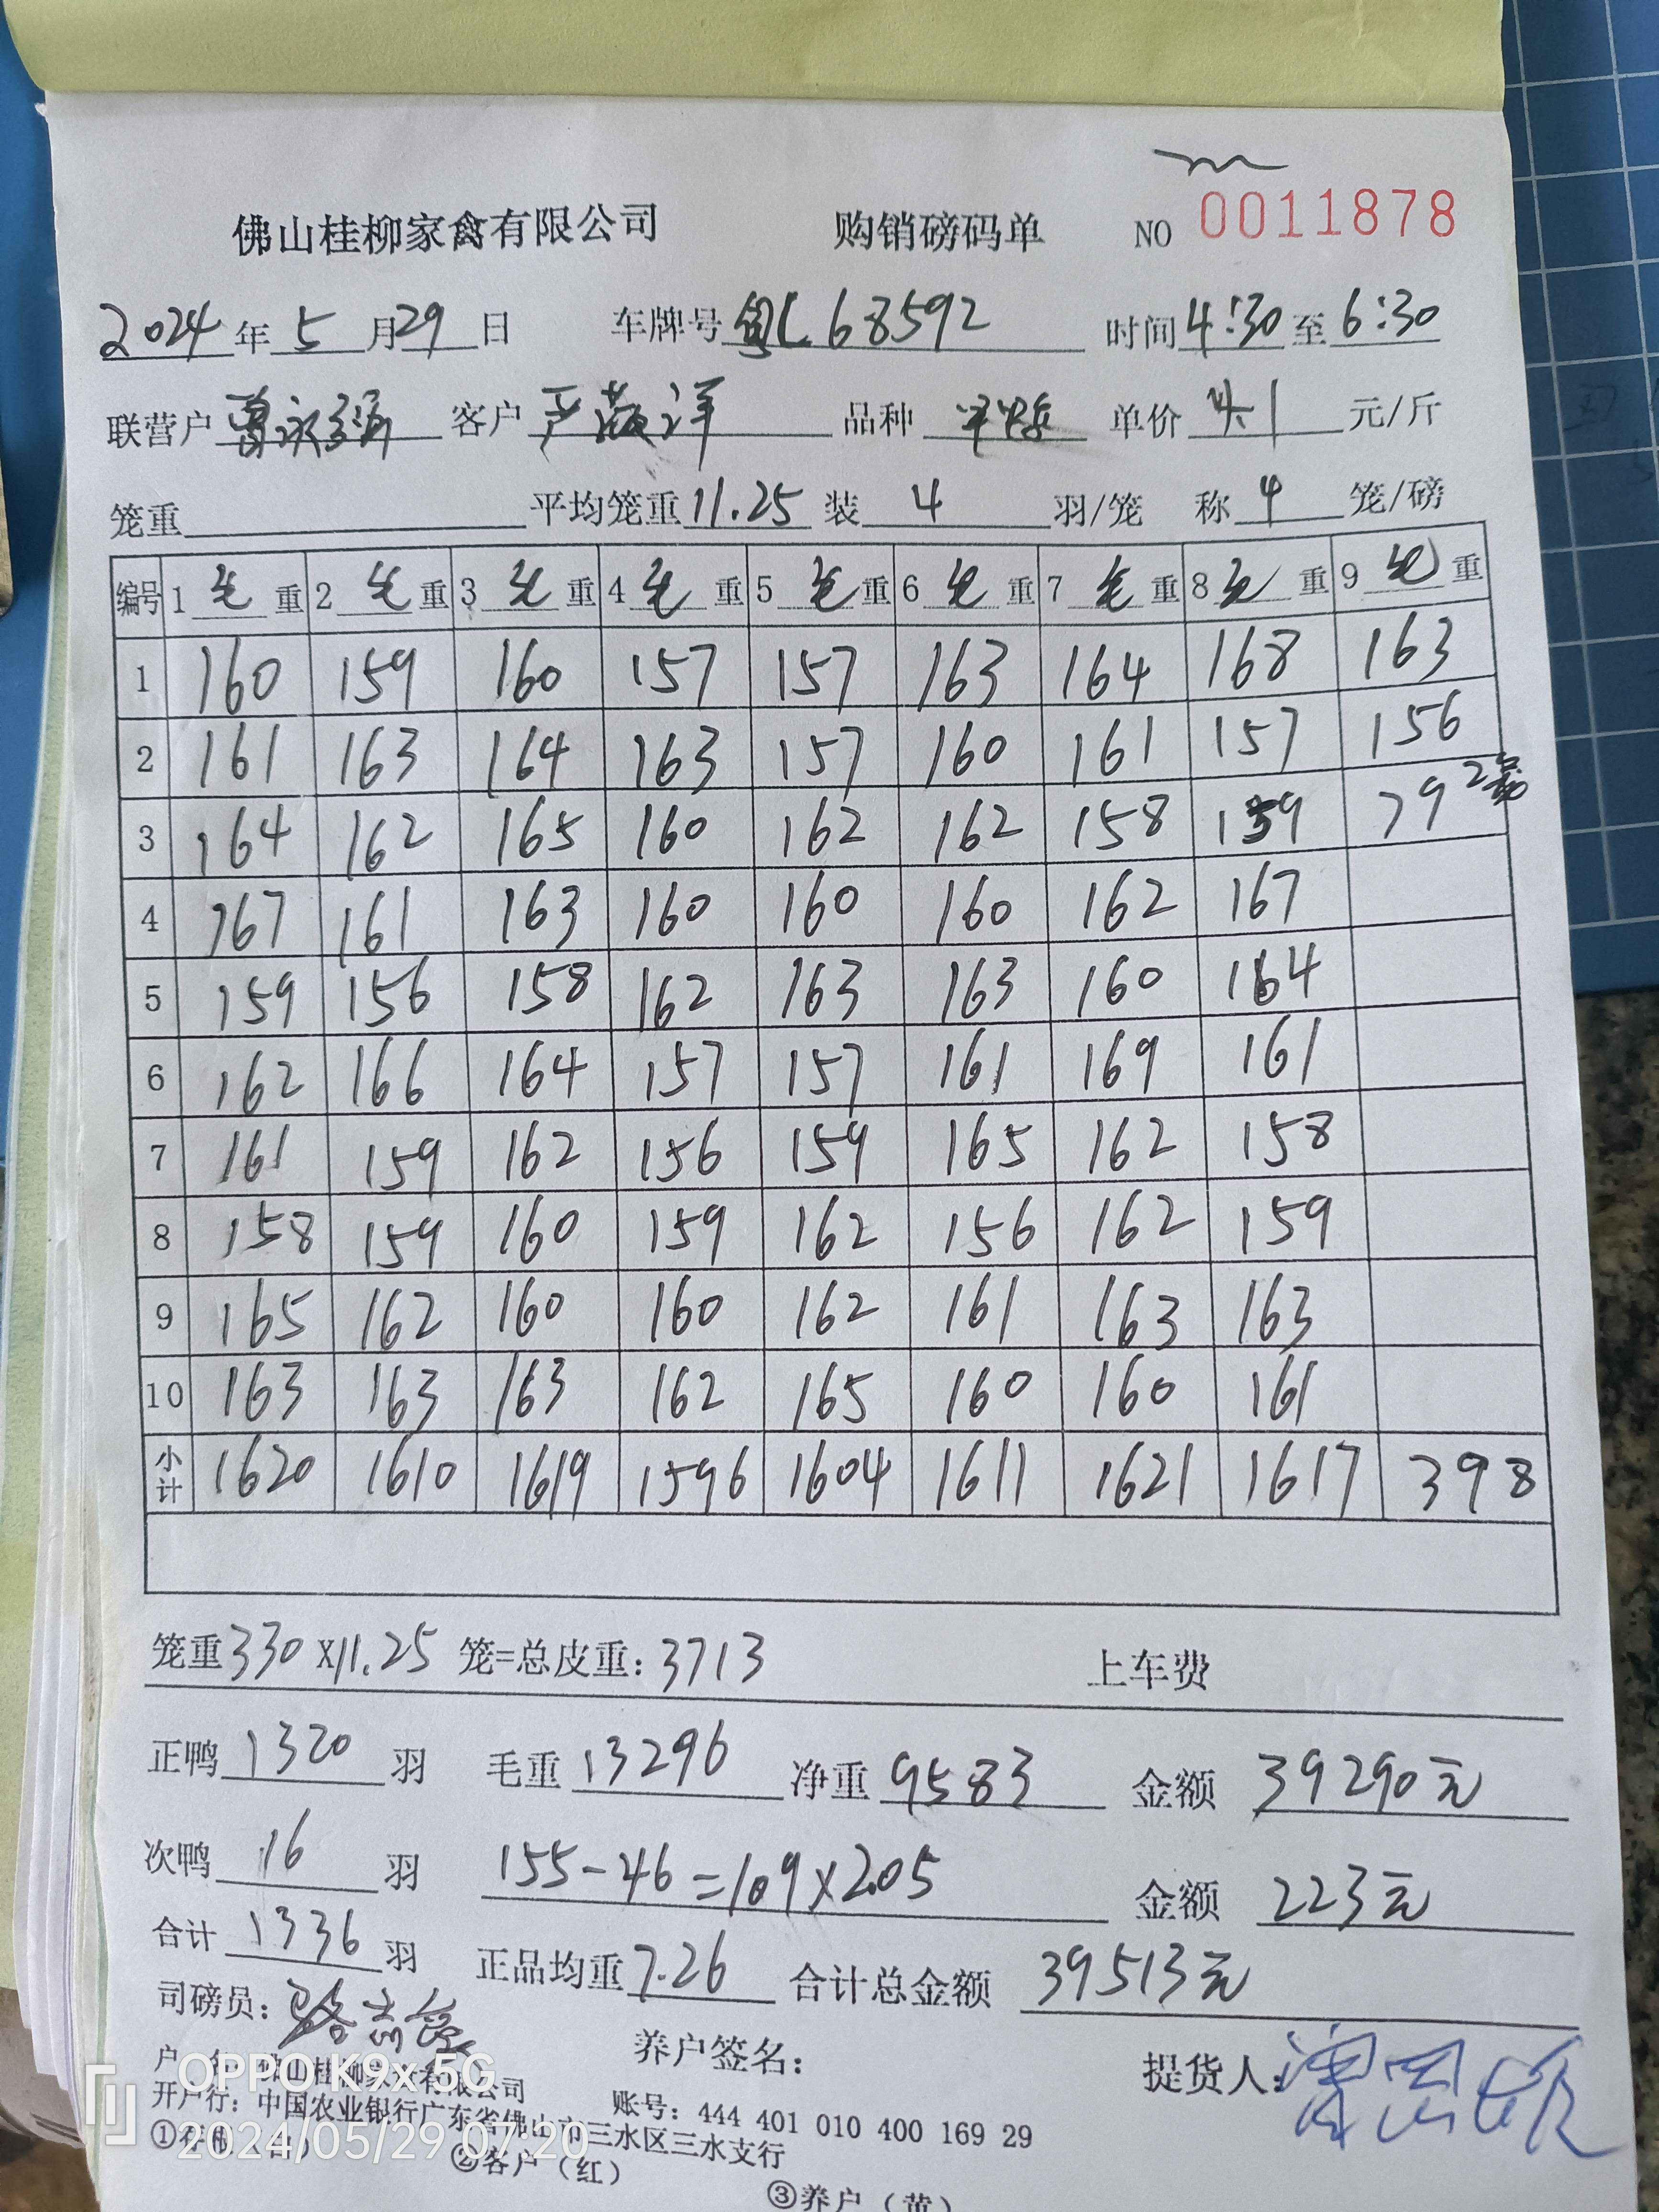 佛山桂柳家禽有限公司 购销磅码单 NO 0011878
2024年5月29日 车牌号粤L68592 时间4:30至6:30
联营户曾 客户严 洋 品种 单价 元/斤
笼重 平均笼重11.25 装4羽/笼 称4笼/磅
编号 1毛重 2毛重 3毛重 4毛重 5毛重 6毛重 7毛重 8毛重 9毛重
1 160 159 160 157 157 163 164 168 163
2 161 163 164 163 157 160 161 157 156
3 164 162 165 160 162 162 158 159 79 2
4 167 161 163 160 160 160 162 167
5 159 156 158 162 163 163 160 164
6 162 166 164 157 157 161 169 161
7 161 159 162 156 159 165 162 158
8 158 159 160 159 162 156 162 159
9 165 162 160 160 162 161 163 163
10 163 163 163 162 165 160 160 161
小计 1620 1610 1619 1596 1604 1611 1621 1617 398
笼重330×11.25 笼=总皮重:3713 上车费
正鸭1320羽 毛重13296 净重9583 金额39290元
次鸭16羽 155-46=109×2.05 金额223元
合计1336羽 正品均重7.26 合计总金额39513元
司磅员: 养户签名: 提货人:
户 名:佛山桂柳家禽有限公司 账号:444 401 010 400 169 29
开户行:中国农业银行广东省佛山市三水区三水支行
②客户(红) ③养户(黄)
OPPO K9x 5G
2024/05/29 07:20